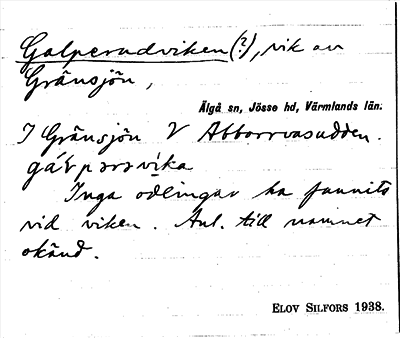 Galperudviken (?), vik av
Gränsjön,
Älgå sn, Jösse hd, Värmlands län.
I Gränsjön V Abborrvasudden.
vika
Inga odlingar ha funnits
vid viken. Anl. till namnet
okänd.
ELOV SILFORS 1938.